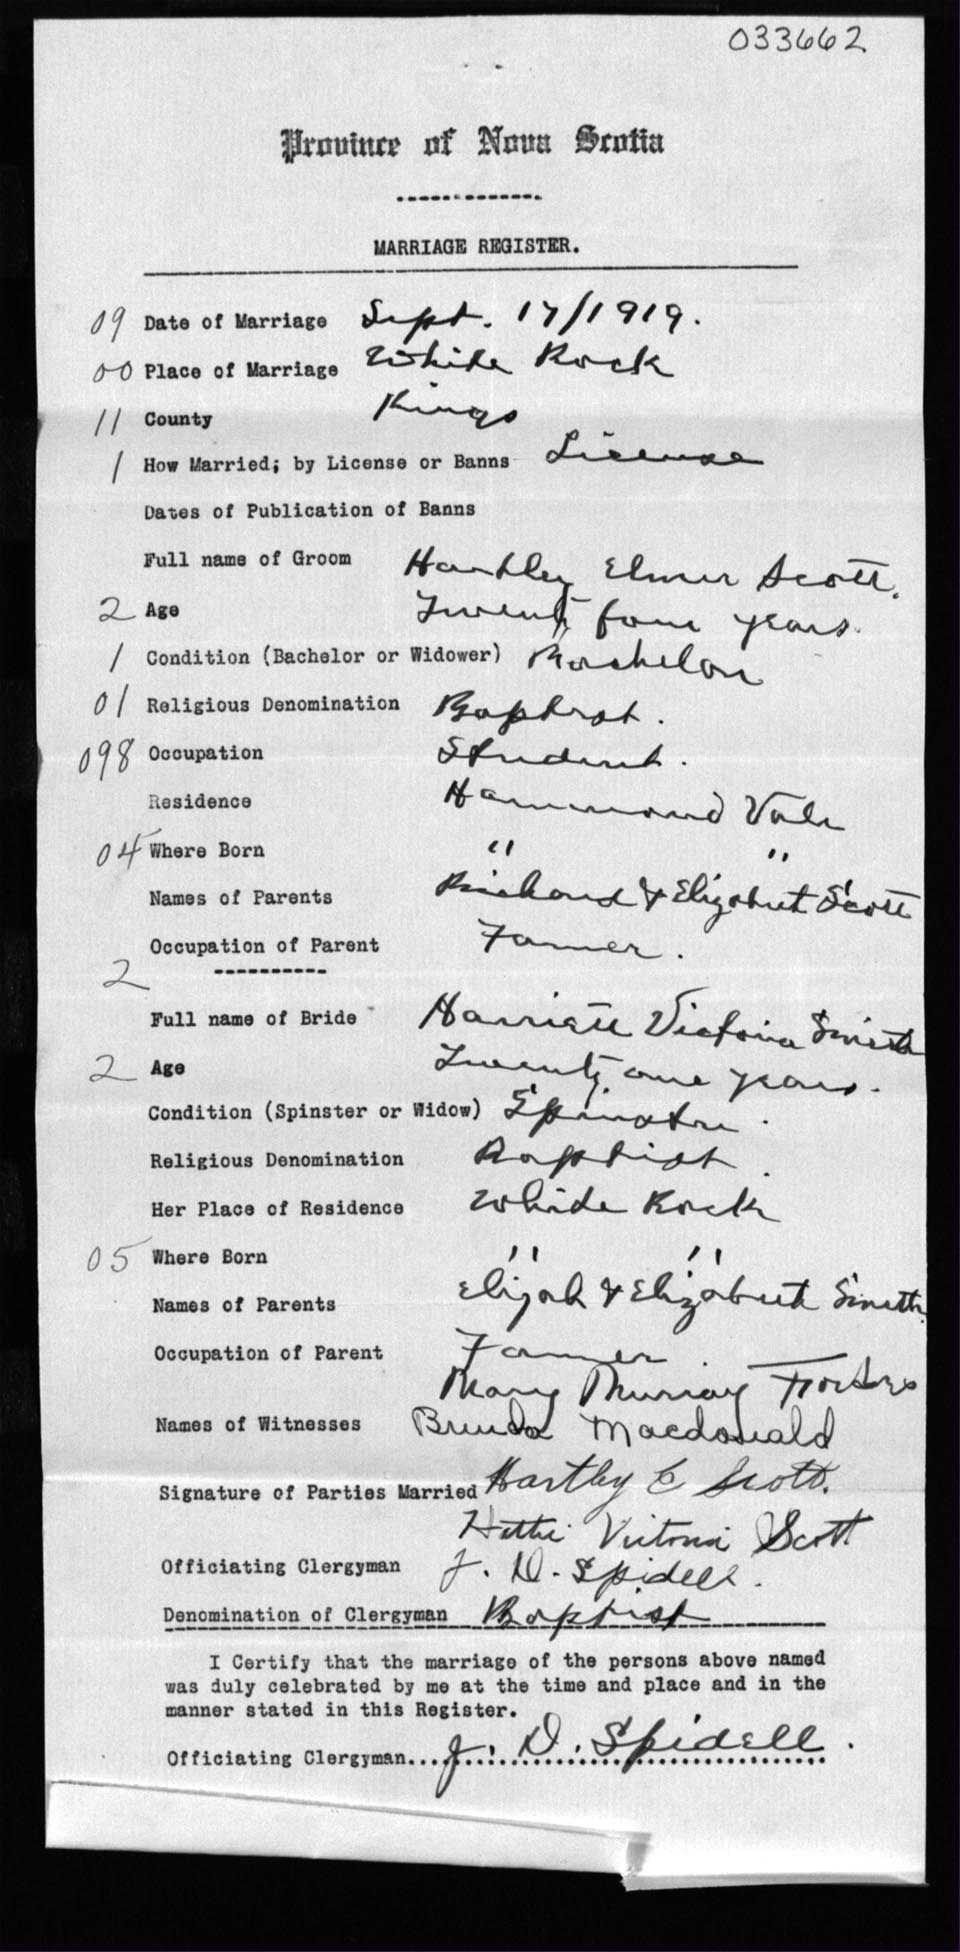 033662
Province of Nova Scotia
MARRIAGE REGISTER.
09 Date of Marriage Sept. 17/1919.
00 Place of Marriage White Rock
11 County Kings
1 How Married; by License or Banns License
Dates of Publication of Banns
Full name of Groom Hartley Elmer Scott.
2 Age Twenty four years.
1 Condition (Bachelor or Widower) Bachelor
01 Religious Denomination Baptist.
098 Occupation Student.
Residence Hammond Vale
04 Where Born " "
Names of Parents Richard & Elizabeth Scott
Occupation of Parent Farmer.
2
Full name of Bride Harriett Victoria Smith
2 Age Twenty one years.
Condition (Spinster or Widow) Spinster.
Religious Denomination Baptist.
Her Place of Residence White Rock
05 Where Born " "
Names of Parents Elijah & Elizabeth Smith
Occupation of Parent Farmer.
Mary Murray
Names of Witnesses Macdonald
Signature of Parties Married Hartley E Scott.
Hettie Victoria Scott
Officiating Clergyman J. D. Spidell.
Denomination of Clergyman Baptist
I Certify that the marriage of the persons above named
was duly celebrated by me at the time and place and in the
manner stated in this Register.
Officiating Clergyman....J. D. Spidell.